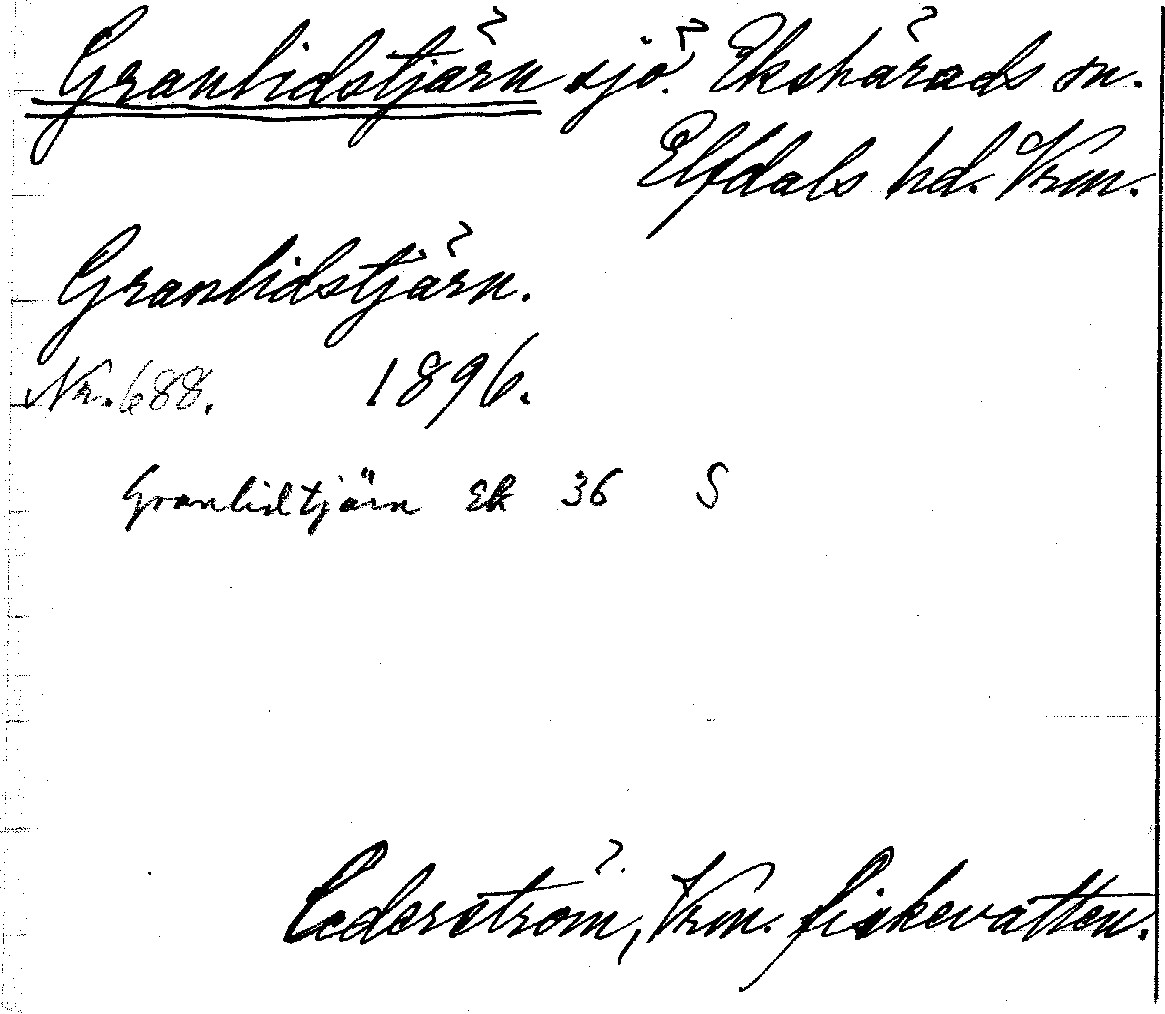 Granlidstjärn sjö. Ekshärads sn.
Elfdals hd. Vrm.
Granlidstjärn.
Nr. 688. 1896.
Granlidtjärn Ek 36 S
Cederström, Vrm. fiskevatten.